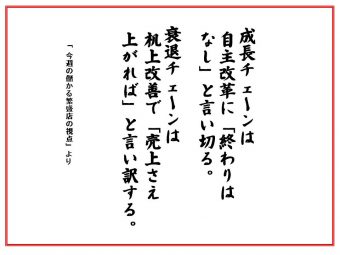 成長チェーンは
自主改革に「終わりは
なし」と言い切る。
衰退チェーンは
机上改善で「売上さえ
上がれば」と言い訳する。
「今週の儲かる繁盛店の視点」より